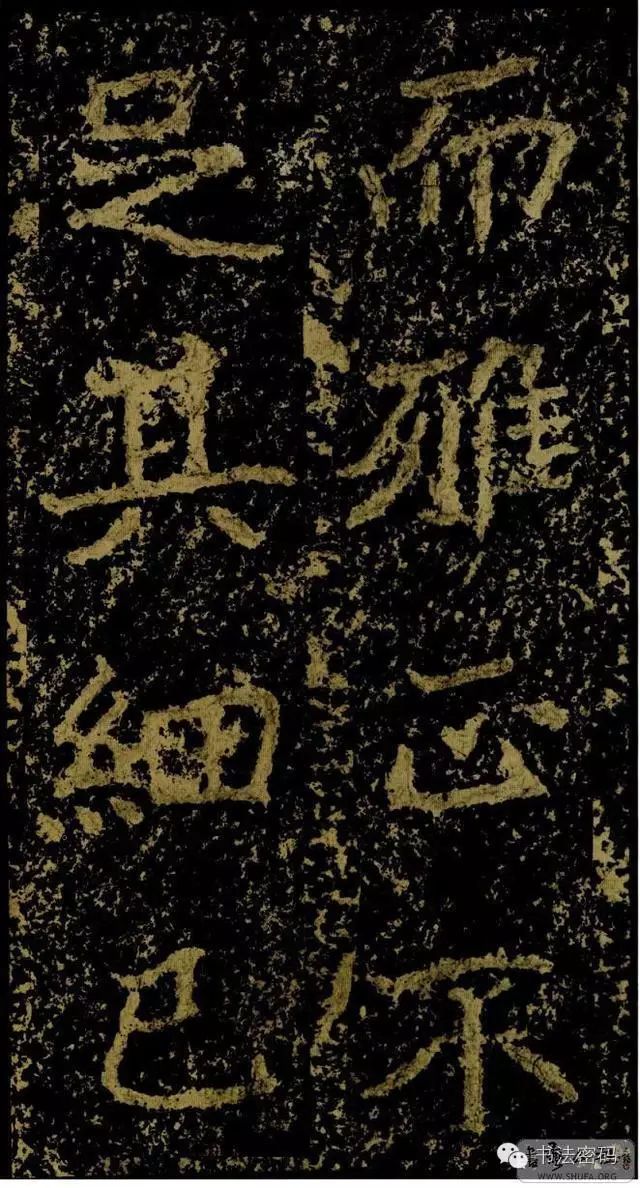 而雅正不
足其細已
书法密码
WWW.SHUFA.ORG